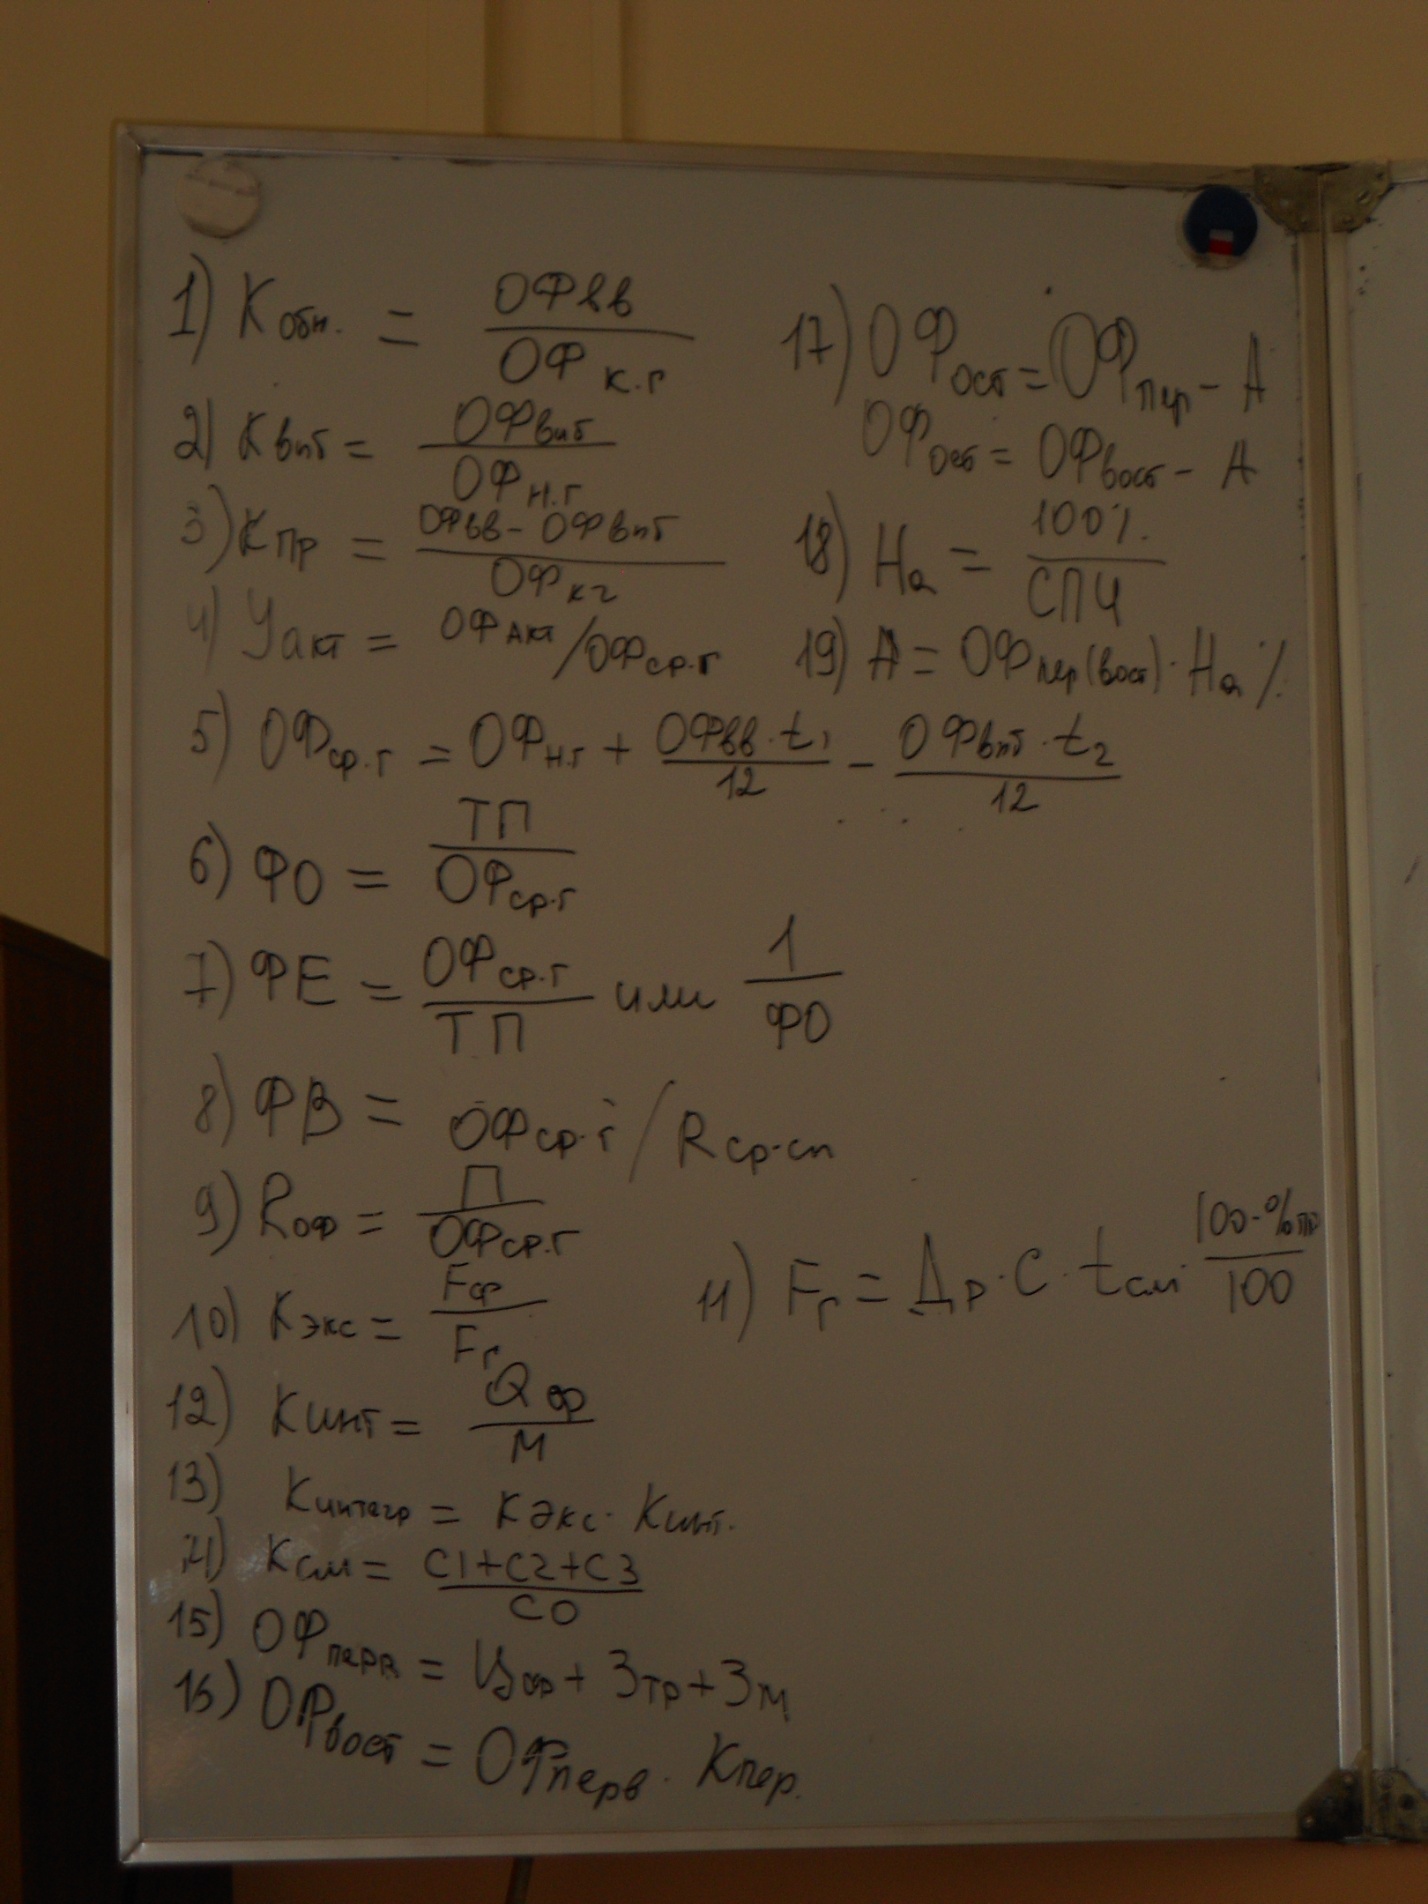 1) Кобн. = ОФвв / ОФ к.г
2) Квыб = ОФвыб / ОФн.г
3) Кпр = ОФвв - ОФвыб / ОФкг
4) Уакт = ОФакт / ОФср.г
5) ОФср.г = ОФн.г + ОФвв · t1 / 12 - ОФвыб · t2 / 12
6) ФО = ТП / ОФср.г
7) ФЕ = ОФср.г / ТП или 1 / ФО
8) ФВ = ОФср.г / Rср.сп
9) Rоф = П / ОФср.г
10) Кэкс = Fф / Fг
11) Fг = Др · С · tсм · 100-%пп / 100
12) Кинт = Qф / М
13) Кинтегр = Кэкс · Кинт.
14) Ксм = С1+С2+С3 / С0
15) ОФперв = Цоф + Зтр + Зм
16) ОФвост = ОФперв · Кпер.
17) ОФост = ОФпер - А
ОФост = ОФвост - А
18) На = 100% / СПЧ
19) А = ОФпер(вост) · На%